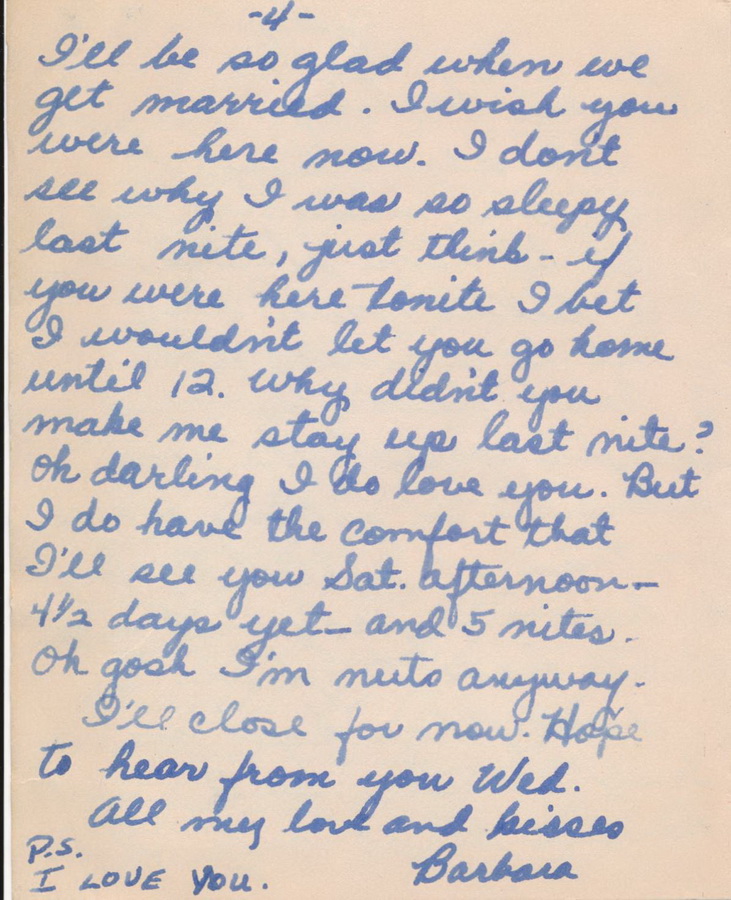 -4-
I'll be so glad when we
get married. I wish you
were here now. I don't
see why I was so sleepy
last nite, just think - if
you were here tonite I bet
I wouldn't let you go home
until 12. Why didn't you
make me stay up last nite?
Oh darling I do love you. But
I do have the comfort that
I'll see you Sat. afternoon—
4½ days yet— and 5 nites.
Oh gosh I'm nuts anyway.
I'll close for now. Hope
to hear from you Wed.
All my love and kisses
Barbara
P.S.
I LOVE YOU.